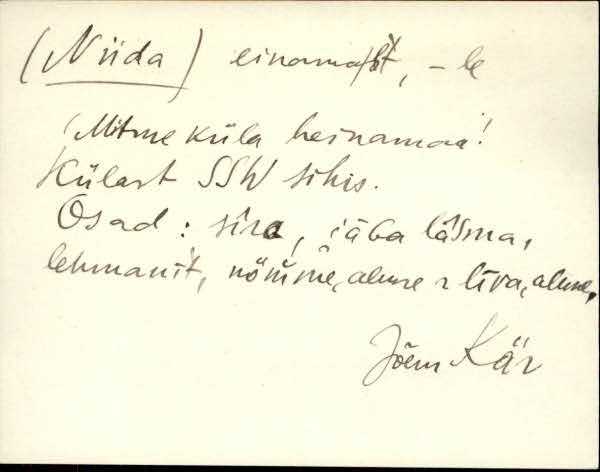 (Niida) einamast, -le
Mitme küla heinamaa!
Külast SSW sihis.
Osad: sīra, jäba läsma,
lehmanit, nõmme, aluse ~ līva, aluse,
Jõem Kär